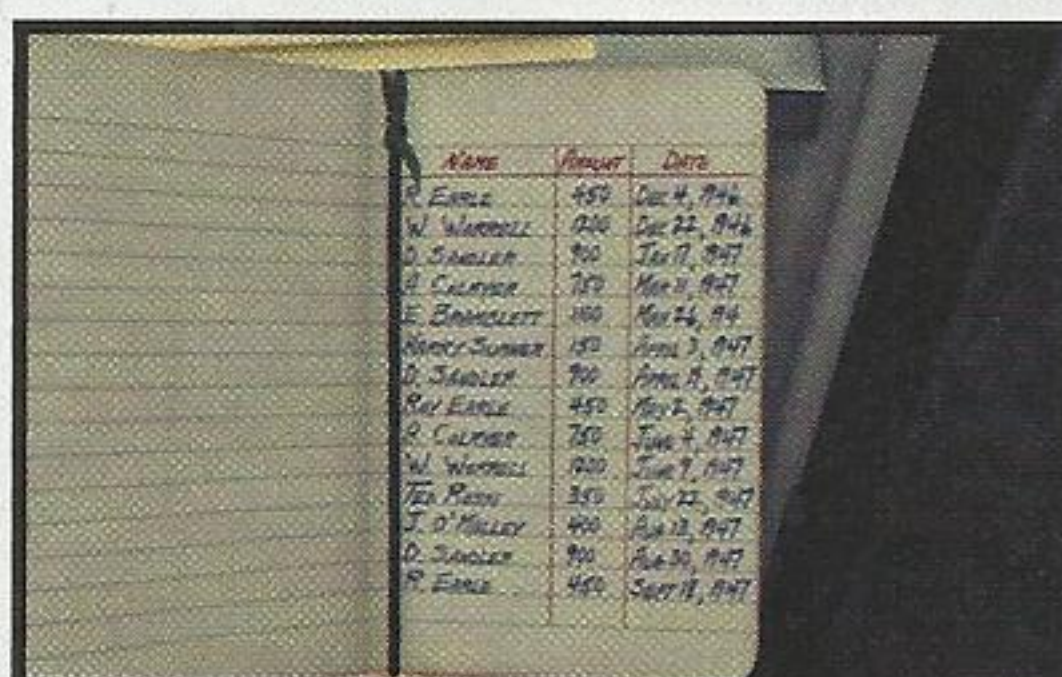 NAME AMOUNT DATE
R. EARLE 450 DEC 4, 1946
W. WORRELL 1200 DEC 22, 1946
D. SANDLER 900 JAN 17, 1947
A. 750 MAR 11, 1947
E. BRAMBLETT 1100 26,
HARRY 150 APRIL 3, 1947
D. SANDLER 900 APRIL 1947
RAY EARLE 450 MAY 2, 1947
A. 750 JUNE 4, 1947
W. WORRELL 1200 JUNE 9, 1947
TED 350 JULY 22, 1947
J. O'MALLEY 400 AUG 13, 1947
D. SANDLER 900 AUG 30, 1947
R. EARLE 450 SEPT 18, 1947